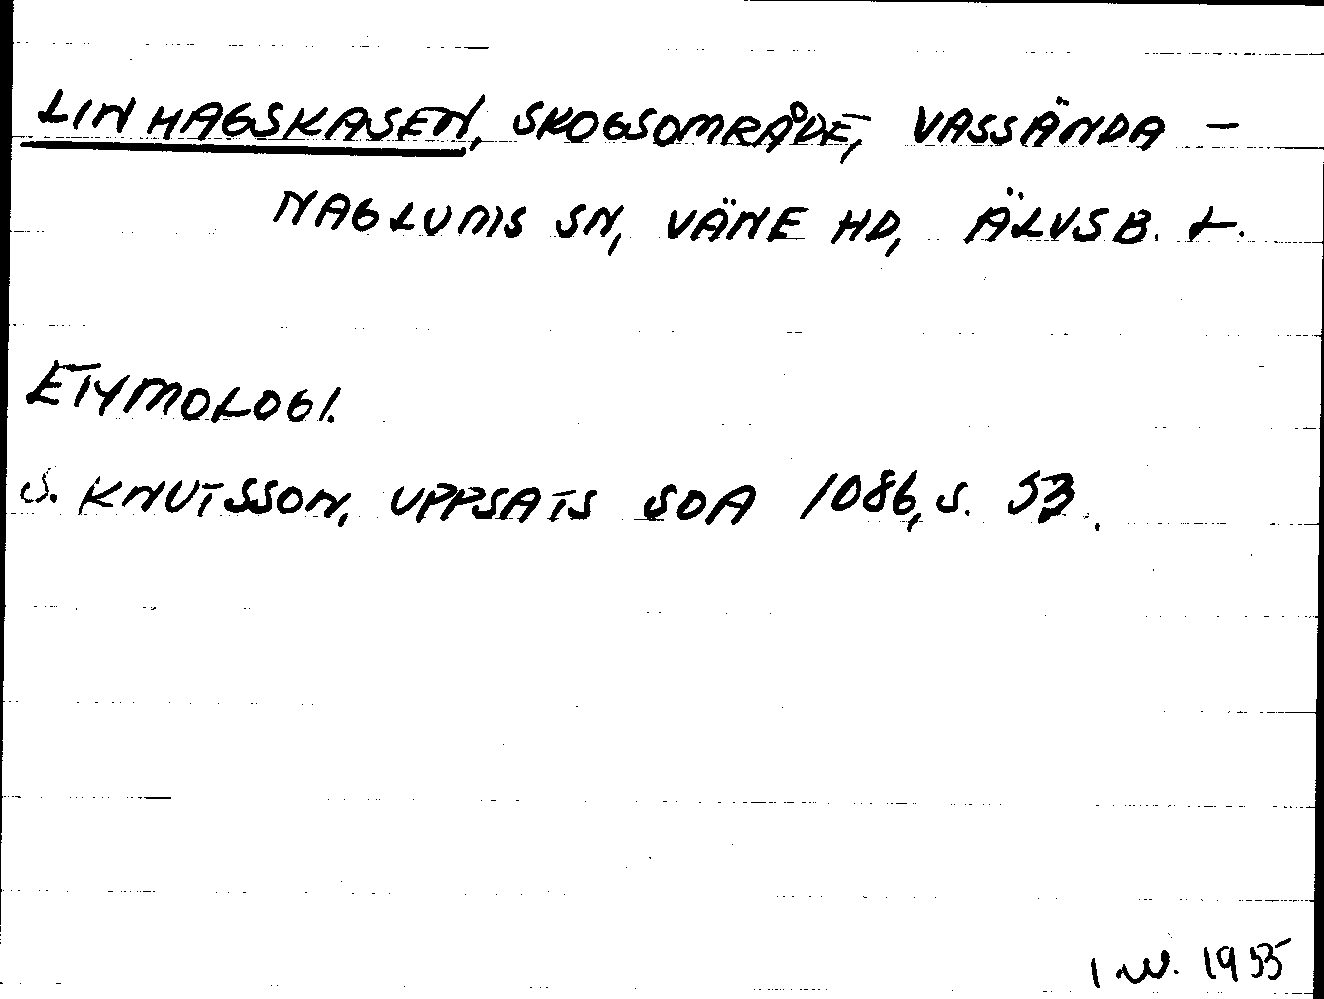 LINHAGSKASEN, SKOGSOMRÅDE, VASSÄNDA -
NAGLUMS SN, VÄNE HD, ÄLVSB. L.
ETYMOLOGI.
S. KNUTSSON, UPPSATS SOA 1086, S. 53.
I W. 1955